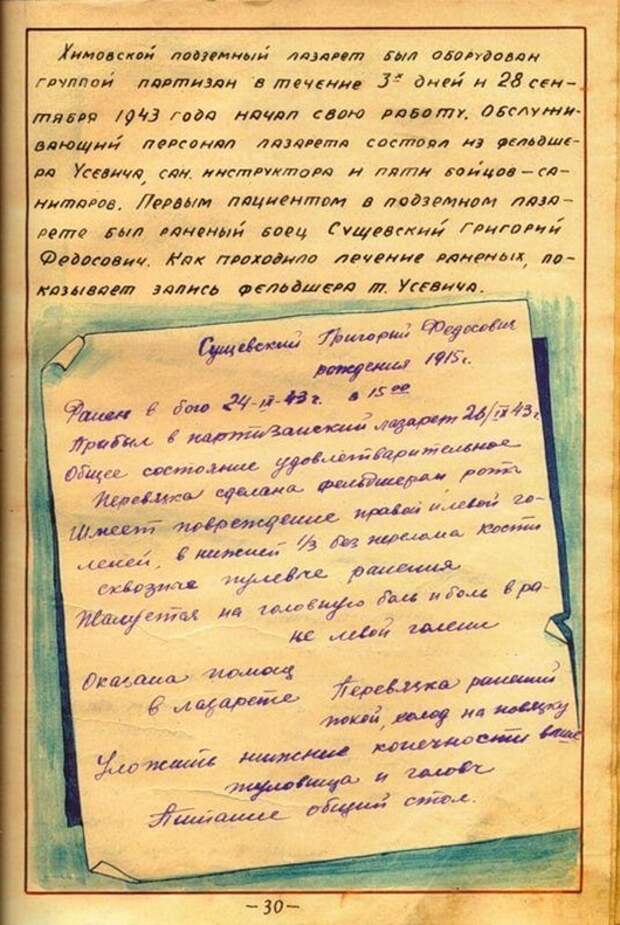 Химовской подземный лазарет был оборудован
группой партизан в течение 3х дней и 28 сен-
тября 1943 года начал свою работу. Обслужи-
вающий персонал лазарета состоял из фельдше-
ра Усевича, сан. инструктора и пяти бойцов-са-
нитаров. Первым пациентом в подземном лаза-
рете был раненый боец Сущевский Григорий
Федосович. Как проходило лечение раненых, по-
казывает запись фельдшера т. Усевича.
Сущевский Григорий Федосович
рождения 1915г.
Ранен в бою 24-IX-43г. в 15 00
Прибыл в партизанский лазарет 26/IX 43г.
Общее состояние удовлетварительное
Перевязка сделана фельдшером роты
Имеет повреждение правой и левой го-
леней, в нижней 1/3 без перелома кости
сквозные пулевые ранения
Жалуется на головную боль и боль в ра-
не левой голени
Оказана помощ
в лазарете
Перевязка ранений
покой, холод на повязку
Уложить нижние конечности выше
туловища и головы
Питание общий стол.
-30-